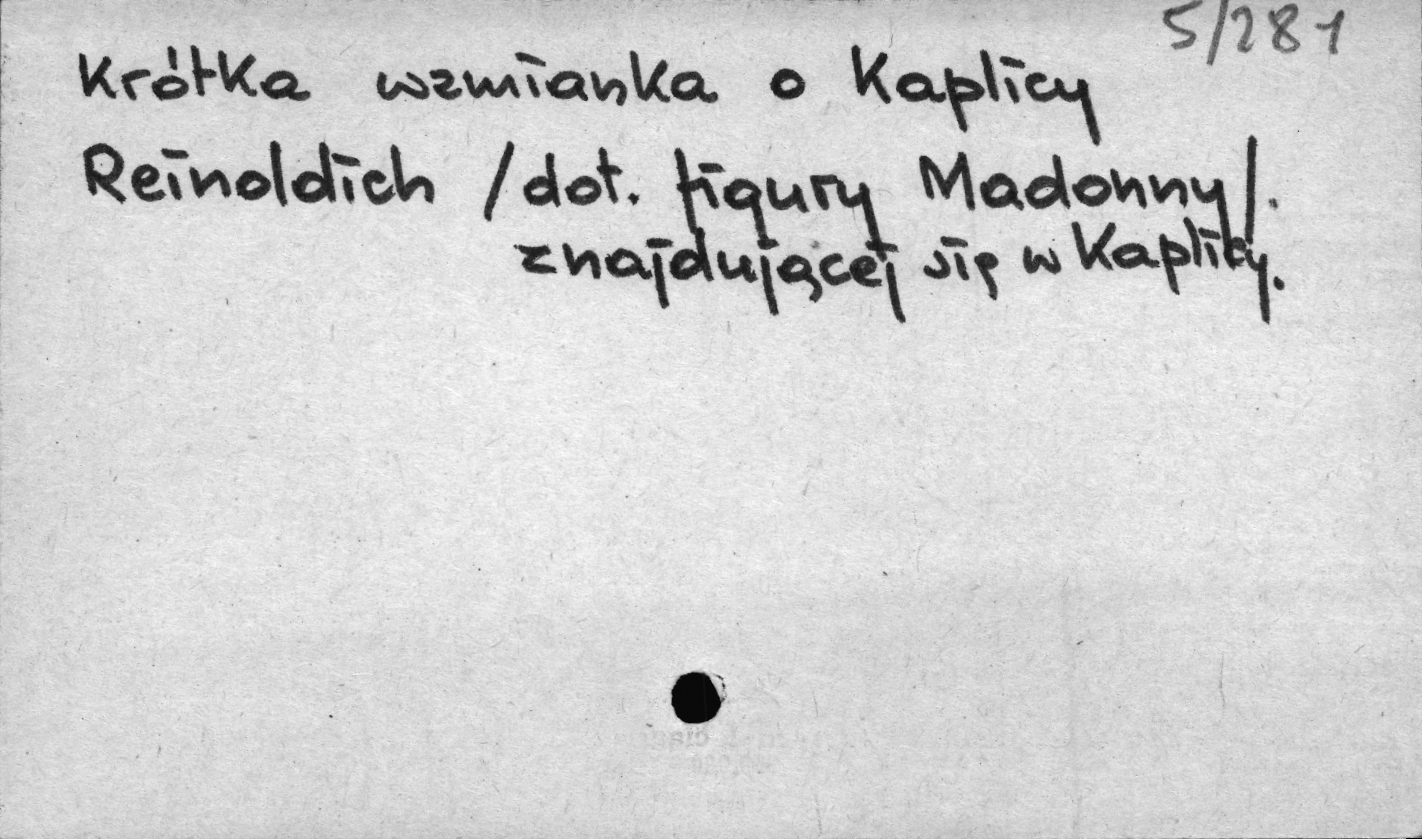 5/281
Krótka wzmianka o Kaplicy
Reinoldich /dot. figury Madonny/.
znajdującej się w Kaplicy.